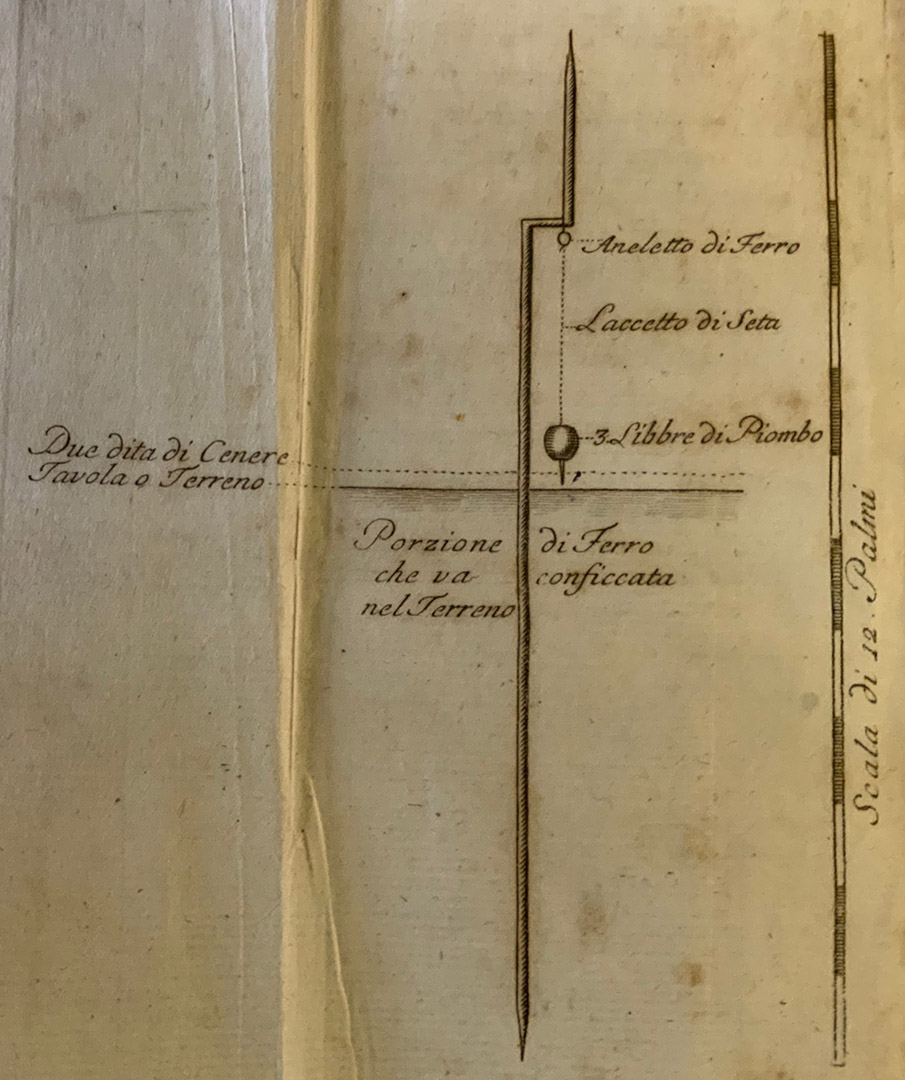 Aneletto di Ferro
Laccetto di Seta
3 Libbre di Piombo
Due dita di Cenere
Tavola o Terreno
Porzione di Ferro
che va conficcata
nel Terreno
Scala di 12 Palmi